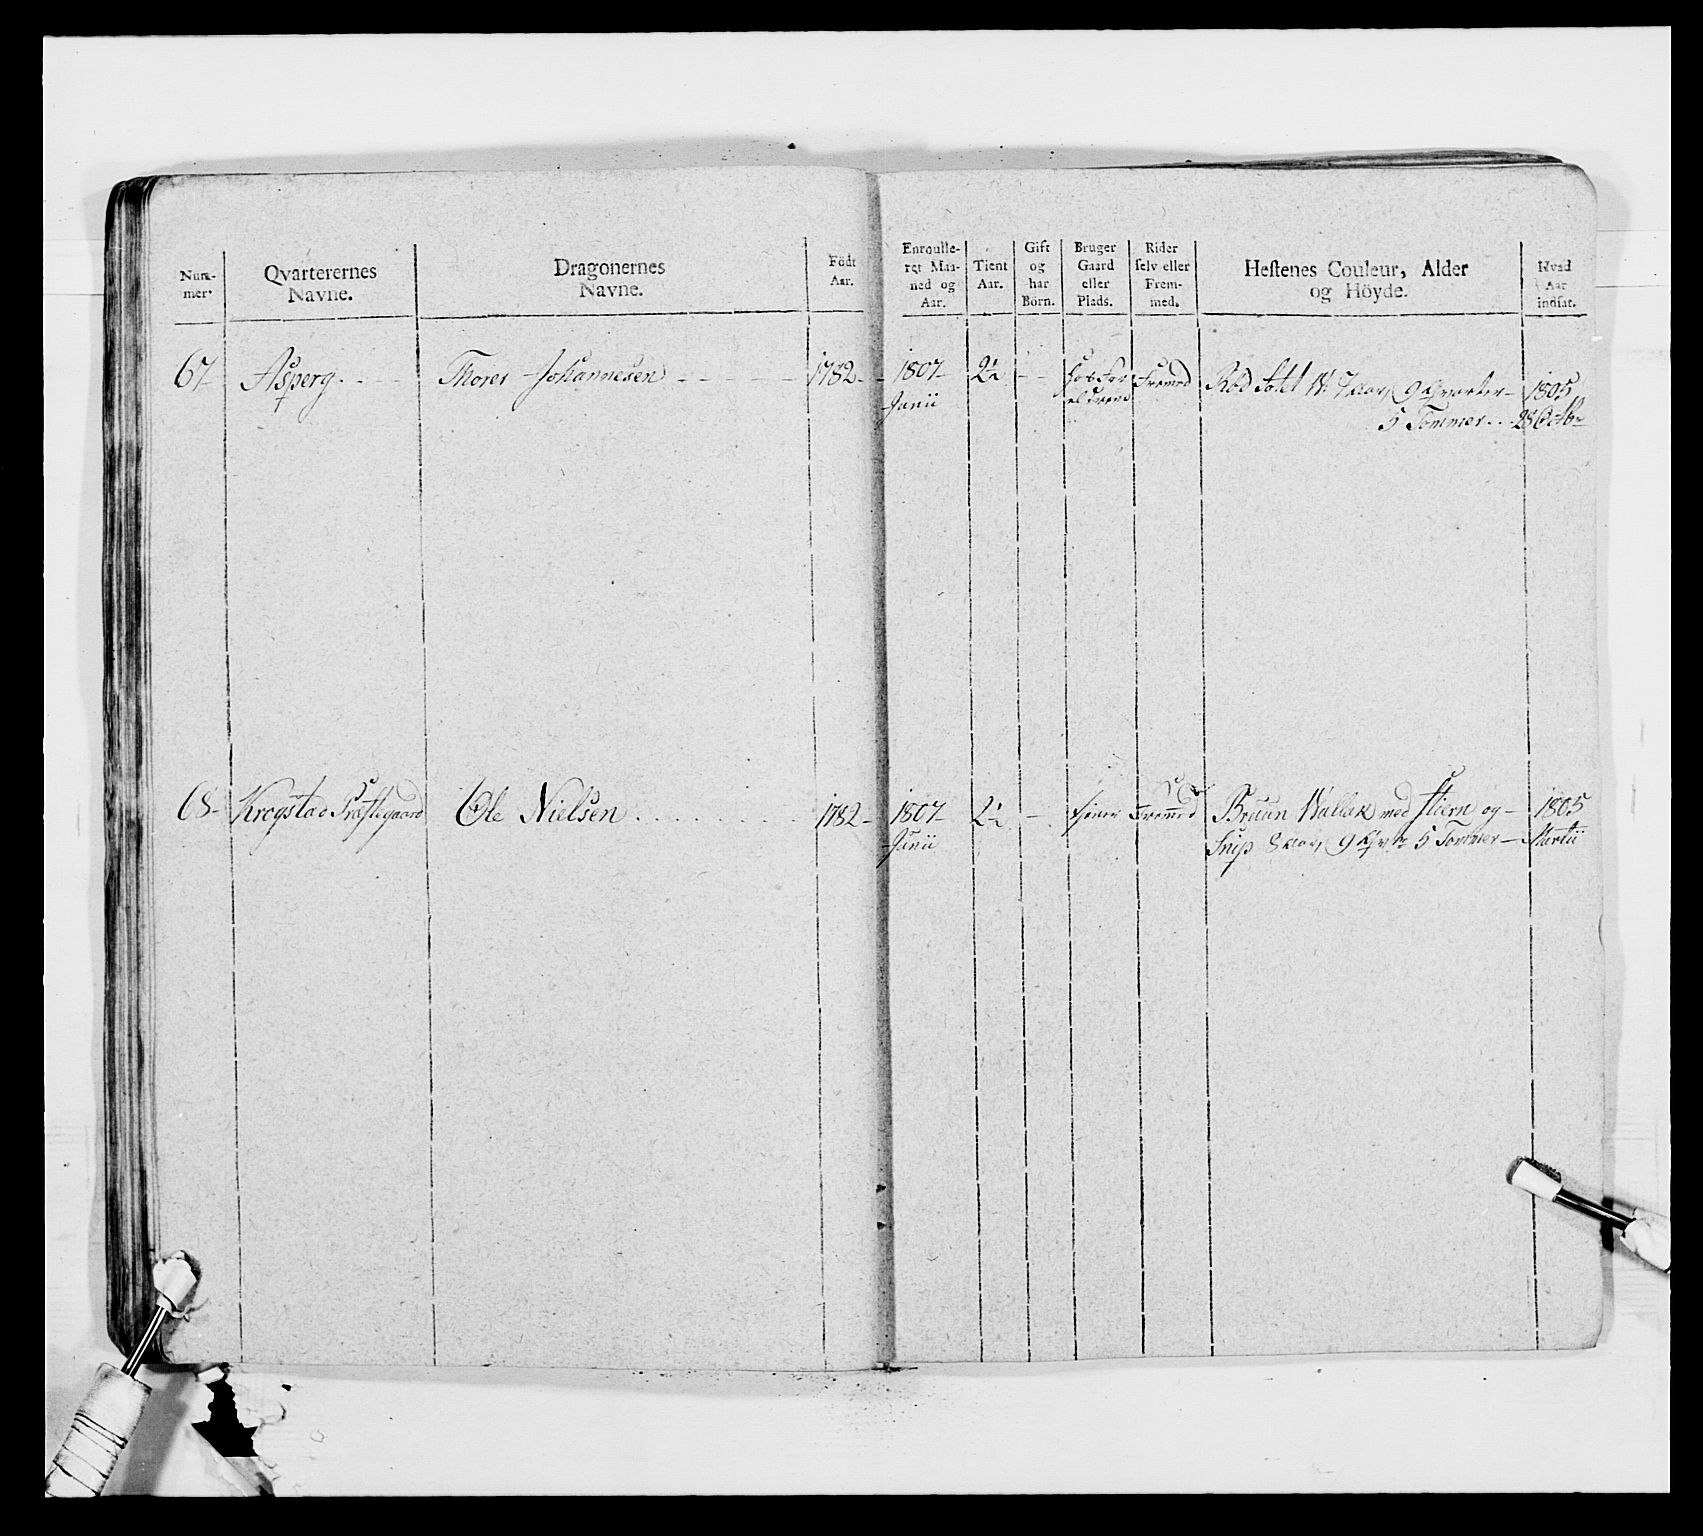 Num-
mer.
Qvarterernes
Navne.
Dragonernes
Navne.
Födt
Aar.
Enroulle-
ret Maa-
ned og
Aar.
Tient
Aar.
Gift
og
har
Börn.
Bruger
Gaard
eller
Plads.
Rider
selv eller
Frem-
med.
Hestenes Couleur, Alder
og Höyde.
Hvad
Aar
indsat.
67 Asperg Thores Johannesen 1782 1807 2½ hos For Fremed Röd W: 7 aar, 9 Qvarter 1805
Junii eldrene 5 Tommer 28 Octbr
68 Krogstad Præstegaard Ole Nielsen 1782 1807 2½ tjener Fremmed Bruun Wallak med Stiern og 1805
Junii Snip 8 aar, 9 Qvtr 5 Tommer Martii